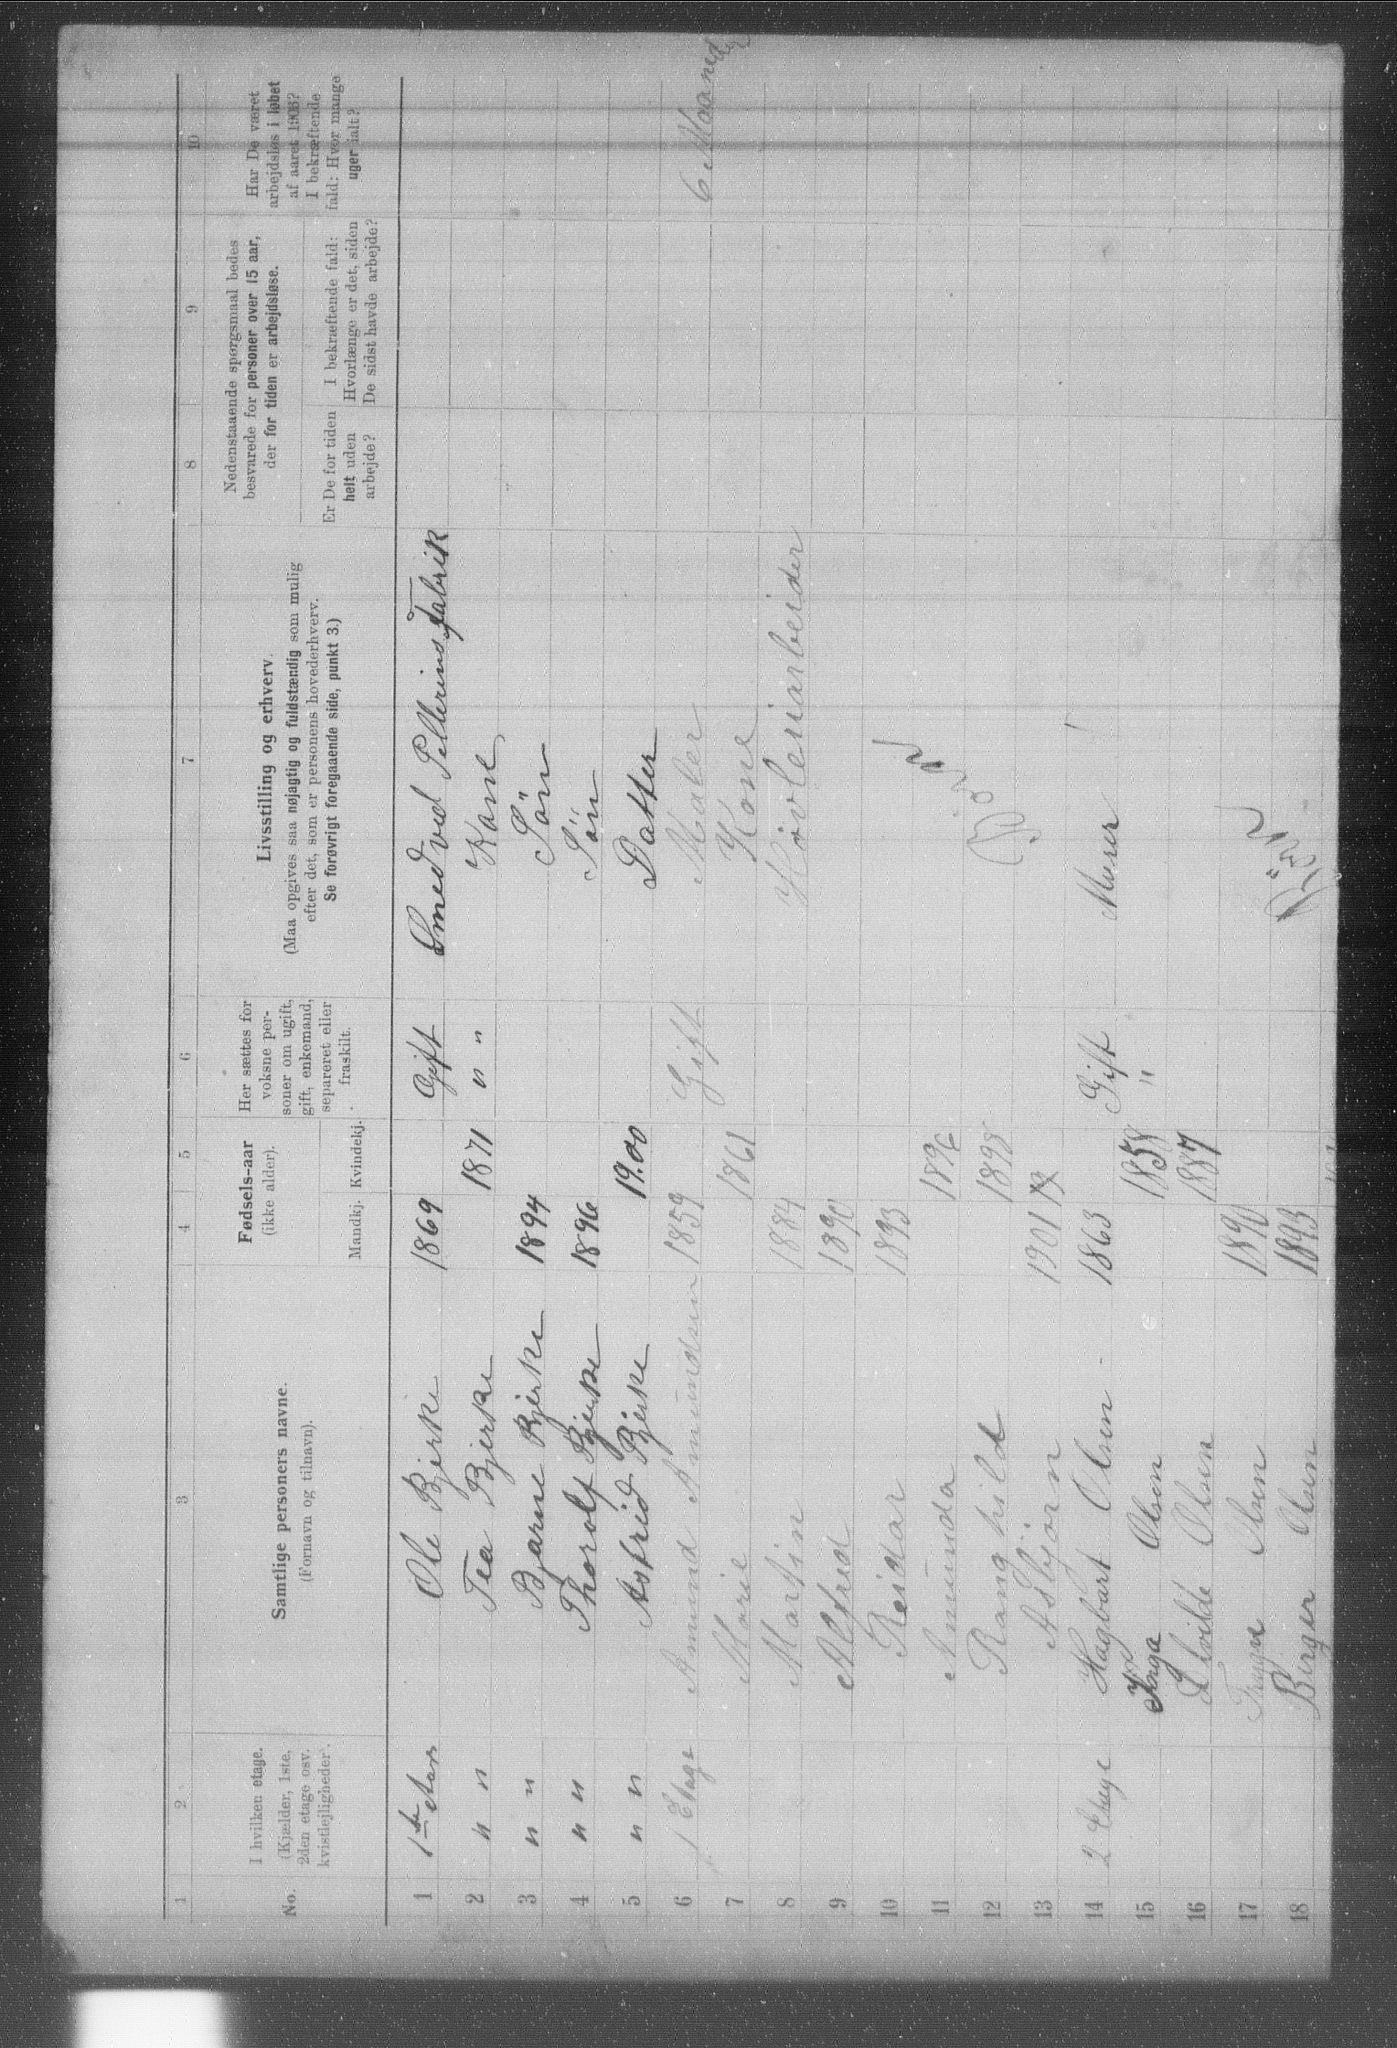 1 2 3 4 5 6 7 8 9 10
No.
I hvilken etage.
(Kjælder, 1ste,
2den etage osv.
kvistlejligheder).
Samtlige personers navne.
(Fornavn og tilnavn).
Fødsels-aar
(ikke alder).
Mandkj. Kvindekj.
Her sættes for
voksne per-
soner om ugift,
gift, enkemand,
separeret eller
fraskilt.
Livsstilling og erhverv.
(Maa opgives saa nøjagtig og fuldstændig som mulig
efter det, som er personens hovederhverv.
Se forøvrigt foregaaende side, punkt 3.)
Nedenstaaende spørgsmaal bedes
besvarede for personer over 15 aar,
der for tiden er arbejdsløse.
Er De for tiden
helt uden
arbejde?
I bekræftende fald:
Hvorlænge er det, siden
De sidst havde arbejde?
Har De været
arbejdsløs i løbet
af aaret 1903?
I bekræftende
fald: Hvor mange
uger ialt?
1 1ste Ole Bjerke 1869 Gift Smed ved Pellerins Fabrik
2 " " Tea Bjerke 1871 " " Kone
3 " " Bjarne Bjerke 1894 Sön
4 " " Thorolf Bjerke 1896 Sön
5 " " Astrid Bjerke 1900 Datter
6 1 Etage Amund Amundsen 1859 Gift Maler 6 Maaneder
7 Marie 1861 Kone
8 Martin 1884 Hövleriarbeider
9 Alfred 1890
10 Reidar 1893
11 Amunda 1896
12 Ranghild 1898
13 Asbjörn 1901
14 2 Etage Hagbart Olsen 1863 Gift Murer
15 Inga Olsen 1858 "
16 Olsen 1887
17 Olsen 1890
18 Birger Olsen 1893